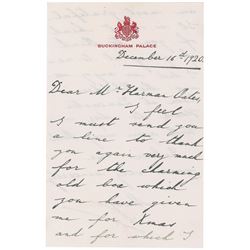 BUCKINGHAM PALACE
December 16th 1920.
Dear Mrs Harman Oates,
I feel
I must send you
a line to thank
you again very much
for the charming
old box which
you have given
me for Xmas
and for which I